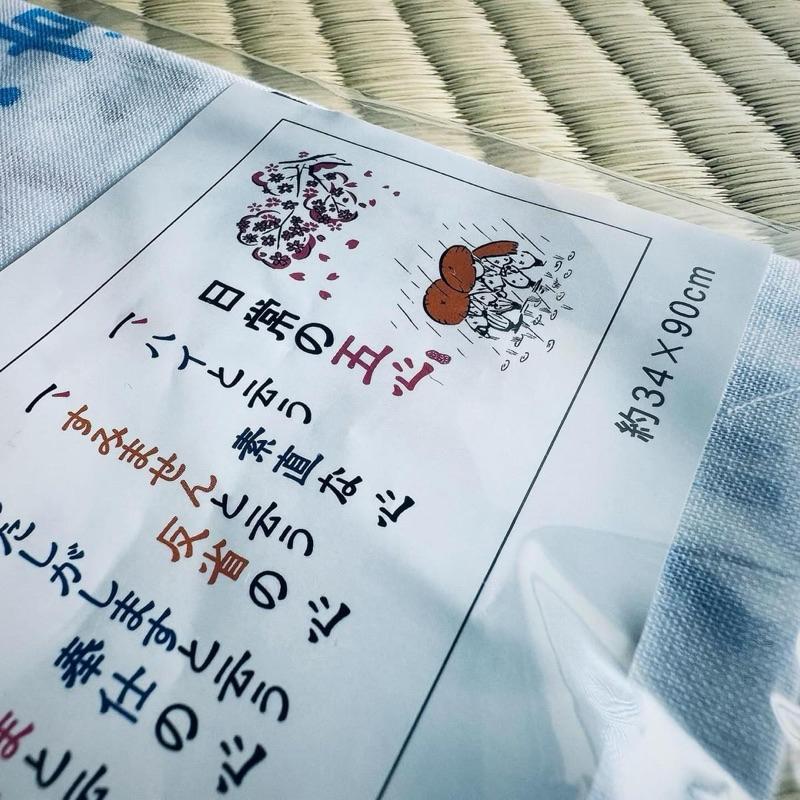 日常の五心
一、ハイと云う
素直な心
一、すみませんと云う
反省の心
たしがしますと云う
奉仕の心
まと云
約34×90cm